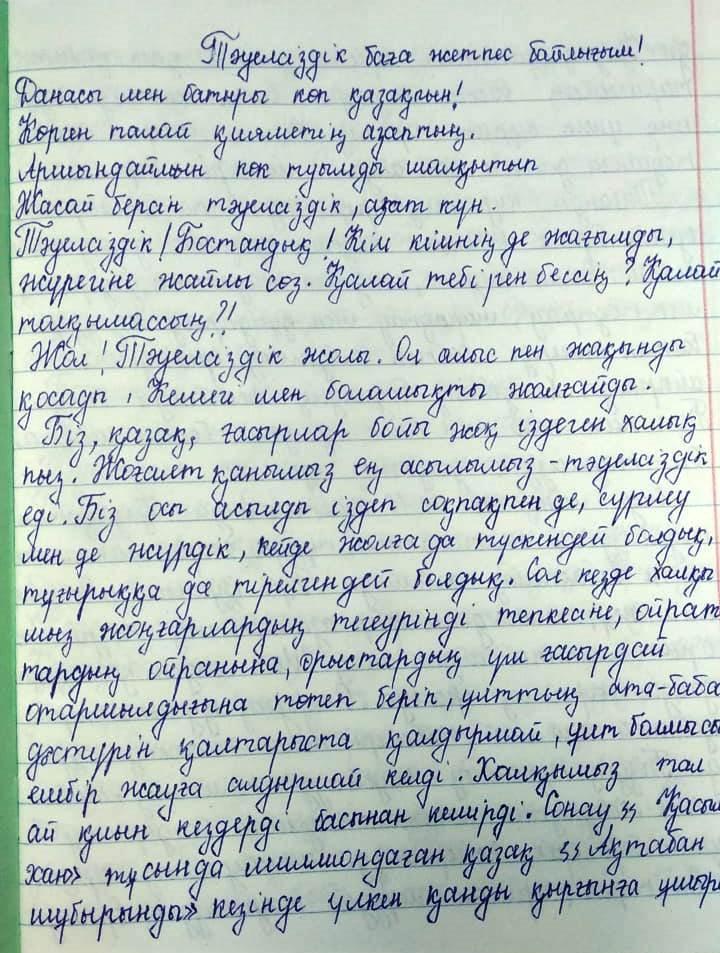 Тәуелсіздік баға жетпес байлығым!
Данасы мен батыры көп қазақпын!
Көрген талай қияметің азаптың.
Аршындаймын көк туымды шалқытып
Жасай берсін тәуелсіздік, азат күн.
Тәуелсіздік! Бостандық! Кім кімнің де жағымды,
жүрегіне жайлы сөз. Қалай тебірен бессің? Қалай
толқымассың?!
Жол! Тәуелсіздік жолы. Ол алыс пен жақынды
қосады, Келмегі мен болашықты жалғайды.
Біз, қазақ, ғасырлар бойы жоқ іздеген халық
пыз. Жоғалт қанымыз ең асылымыз - тәуелсіздік
еді. Біз осы асылды іздеп соқпақпен де, сүрлеу
мен де жүрдік, кейде жолға да түскендей болдық,
тұғырыққа да тірелгендей болдық. Сол кезде халқы
мыз жоңғарлардың тегеурінді тепкесіне, ойрат
тардың ойранына, орыстардың үш ғасырдай
отаршылдығына төтеп беріп, ұлттың ата-баба
дәстүрін қалтарыста қалдырмай, ұлт болмысы
ешбір жауға алдырмай келді. Халқымыз тал
ай қиын кездерді басынан кешірді. Сонау « Қасым
хан» тұсында миллиондаған қазақ « Ақтабан
шұбырынды» кезінде үлкен қанды қырғынға ұшыра